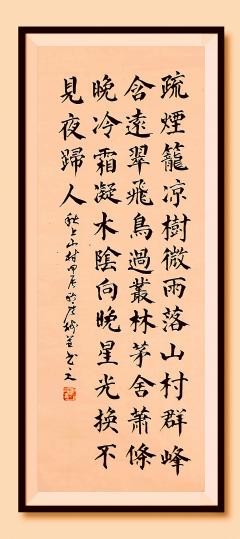 疏煙籠凉樹微雨落山村群峰
含遠翠飛鳥過叢林茅舍蕭條
晚冷霜凝木陰向晚星光換不
見夜歸人
秋上山村甲辰